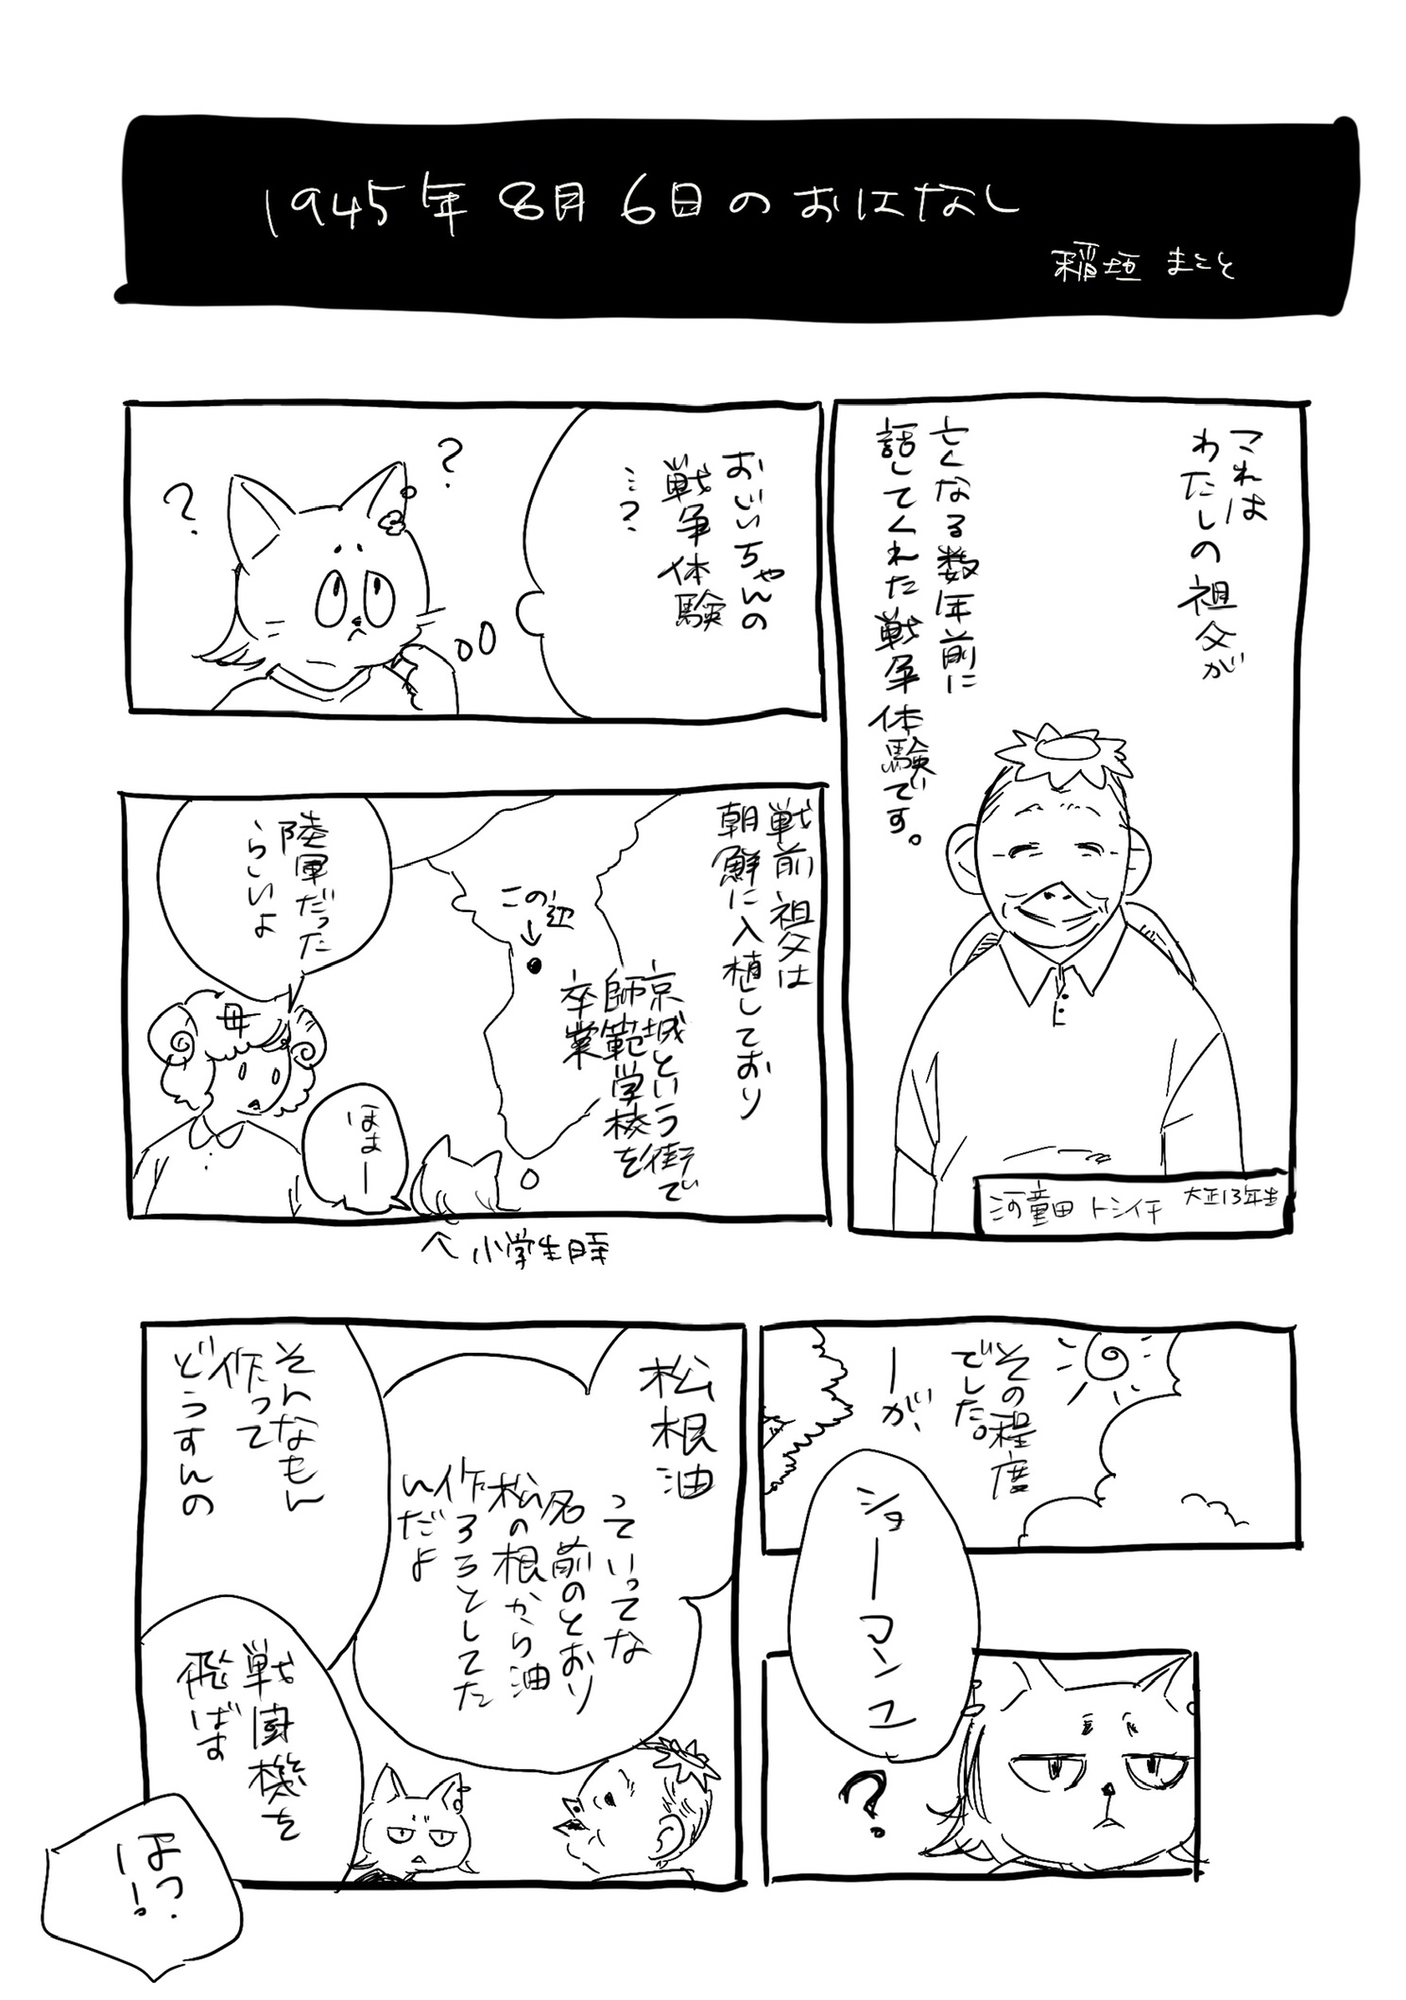 1945年8月6日のおはなし
稲垣 まこと
これは
わたしの祖父が
亡くなる数年前に
話してくれた戦争体験です。
河童田 トシイチ 大正13年生
おじいちゃんの
戦争体験
…?
?
?
戦前祖父は
朝鮮に入植しており
京城という街で
師範学校を
卒業
この辺
↓
陸軍だった
らしいよ
母
ほまー
小学生時
その程度
でした。
ーが、
ショーマンユ
?
松根油
っていってな
名前のとおり
松の根から油
作ろうとしてた
んだよ
そんなもん
作って
どうすんの
戦闘機を
飛ばす
はっ?!